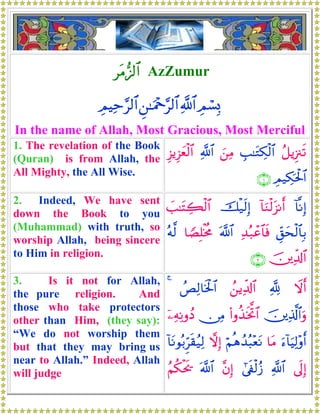 الزُّمَر AzZumur
بِسْمِ ٱللَّهِ ٱلرَّحْمَـٰنِ ٱلرَّحِيمِ
In the name of Allah, Most Gracious, Most Merciful
1. The revelation of the Book
(Quran) is from Allah, the
All Mighty, the All Wise.
تَنزِيلُ ٱلْكِتَـٰبِ مِنَ ٱللَّهِ ٱلْعَزِيزِ
ٱلْحَكِيمِ ﴿١﴾
2. Indeed, We have sent
down the Book to you
(Muhammad) with truth, so
worship Allah, being sincere
to Him in religion.
إِنَّآ أَنزَلْنَآ إِلَيْكَ ٱلْكِتَـٰبَ
بِٱلْحَقِّ فَٱعْبُدِ ٱللَّهَ مُخْلِصًا لَّهُ
ٱلدِّينَ ﴿٢﴾
3. Is it not for Allah,
the pure religion. And
those who take protectors
other than Him, (they say):
“We do not worship them
but that they may bring us
near to Allah.” Indeed, Allah
will judge
أَلَا لِلَّهِ ٱلدِّينُ ٱلْخَالِصُ ۚ
وَٱلَّذِينَ ٱتَّخَذُوا۟ مِن دُونِهِۦٓ
أَوْلِيَآءَ مَا نَعْبُدُهُمْ إِلَّا لِيُقَرِّبُونَآ
إِلَى ٱللَّهِ زُلْفَىٰٓ إِنَّ ٱللَّهَ يَحْكُمُ